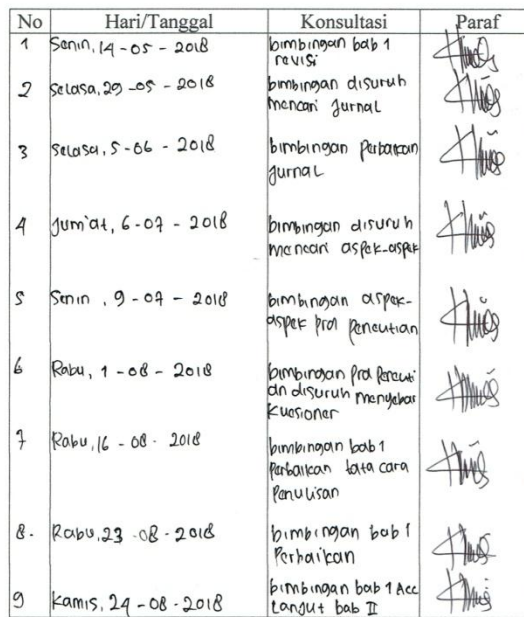 No Hari/Tanggal Konsultasi Paraf
1 Senin, 14-05-2018 bimbingan bab 1
revisi
2 Selasa, 29-05-2018 bimbingan disuruh
mencari jurnal
3 Selasa, 5-06-2018 bimbingan perbaikan
jurnal
4 Jum'at, 6-07-2018 bimbingan disuruh
mencari aspek-aspek
5 Senin, 9-07-2018 bimbingan aspek-
aspek pra penelitian
6 Rabu, 1-08-2018 bimbingan pra peneliti
an disuruh menyebar
kuesioner
7 Rabu, 16-08-2018 bimbingan bab 1
Perbaikan tata cara
Penulisan
8. Rabu, 23-08-2018 bimbingan bab 1
Perbaikan
9 Kamis, 24-08-2018 bimbingan bab 1 Acc
Lanjut bab II